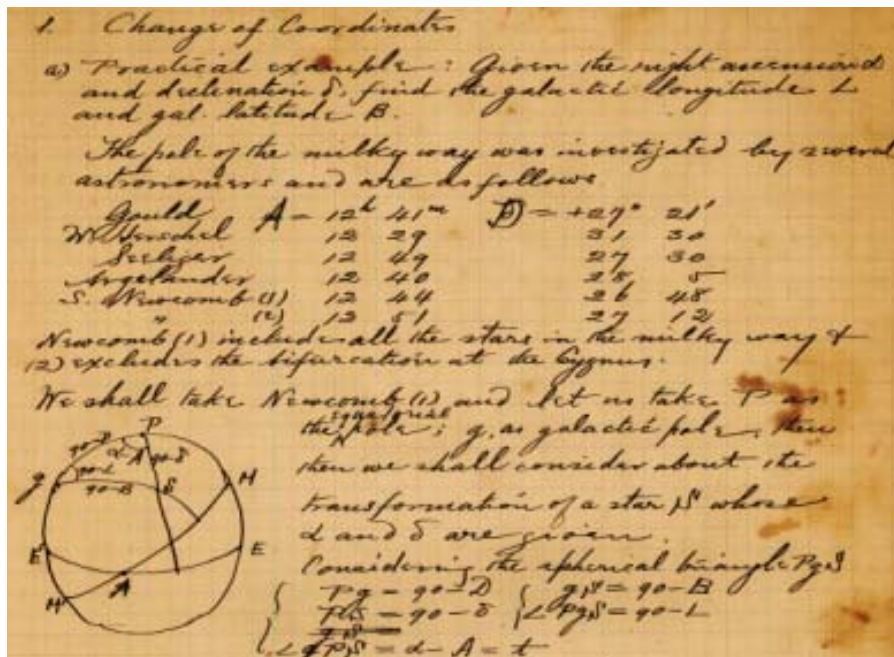 1. Change of Coordinates
a) Practical example : Given the right ascension α
and declenation δ, find the galactic longitude L
and gal. latitude B.
The pole of the milky way was investigated by several
astronomers and are as follows
Gould A = 12h 41m D = +27° 21'
W. Herschel 12 29 31 30
Seeliger 12 49 27 30
Argelander 12 40 28 5
S. Newcomb (1) 12 44 26 48
" (2) 12 51 27 12
Newcomb (1) includes all the stars in the milky way &
(2) excludes the bifurcation at the Cygnus.
We shall take Newcomb (1) and let us take P as
the equatorial pole; g, as galactic pole, then
then we shall consider about the
transformation of a star S whose
α and δ are given.
Considering the spherical triangle PgS
Pg = 90-D gS = 90-B
PS = 90-δ ∠PgS = 90-L
gS =
∠gPS = α - A = t
P
90-D α-A 90-δ
90-L
g 90-B S H
E' E
A
H'